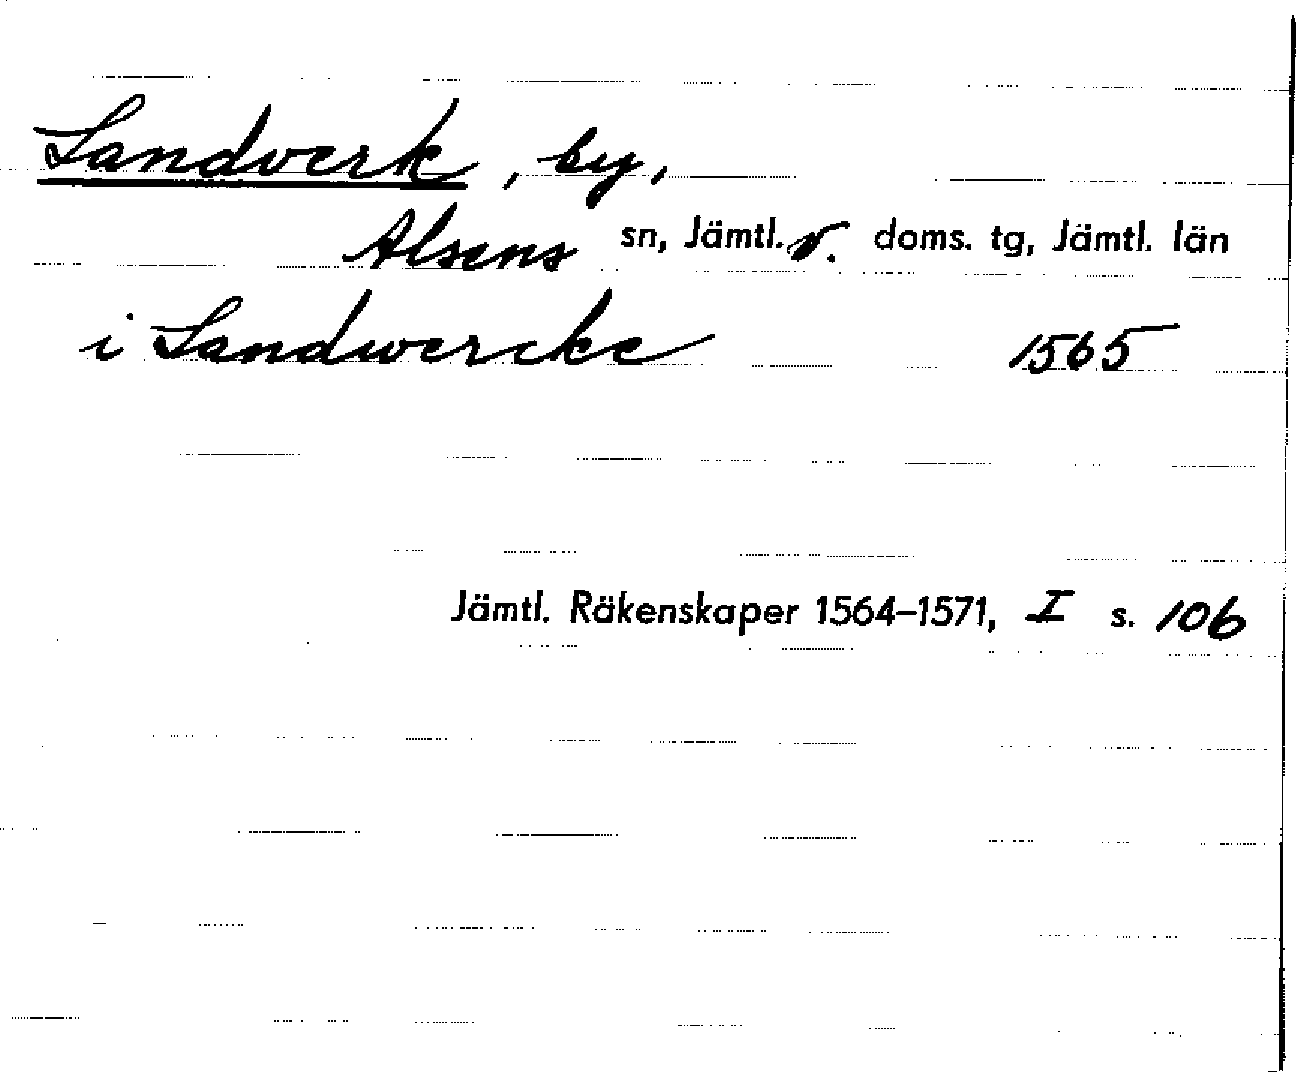 Landverk, by,
Alsens sn, Jämtl. v. doms. tg, Jämtl. län
i Landwercke 1565
Jämtl. Räkenskaper 1564–1571, I s. 106